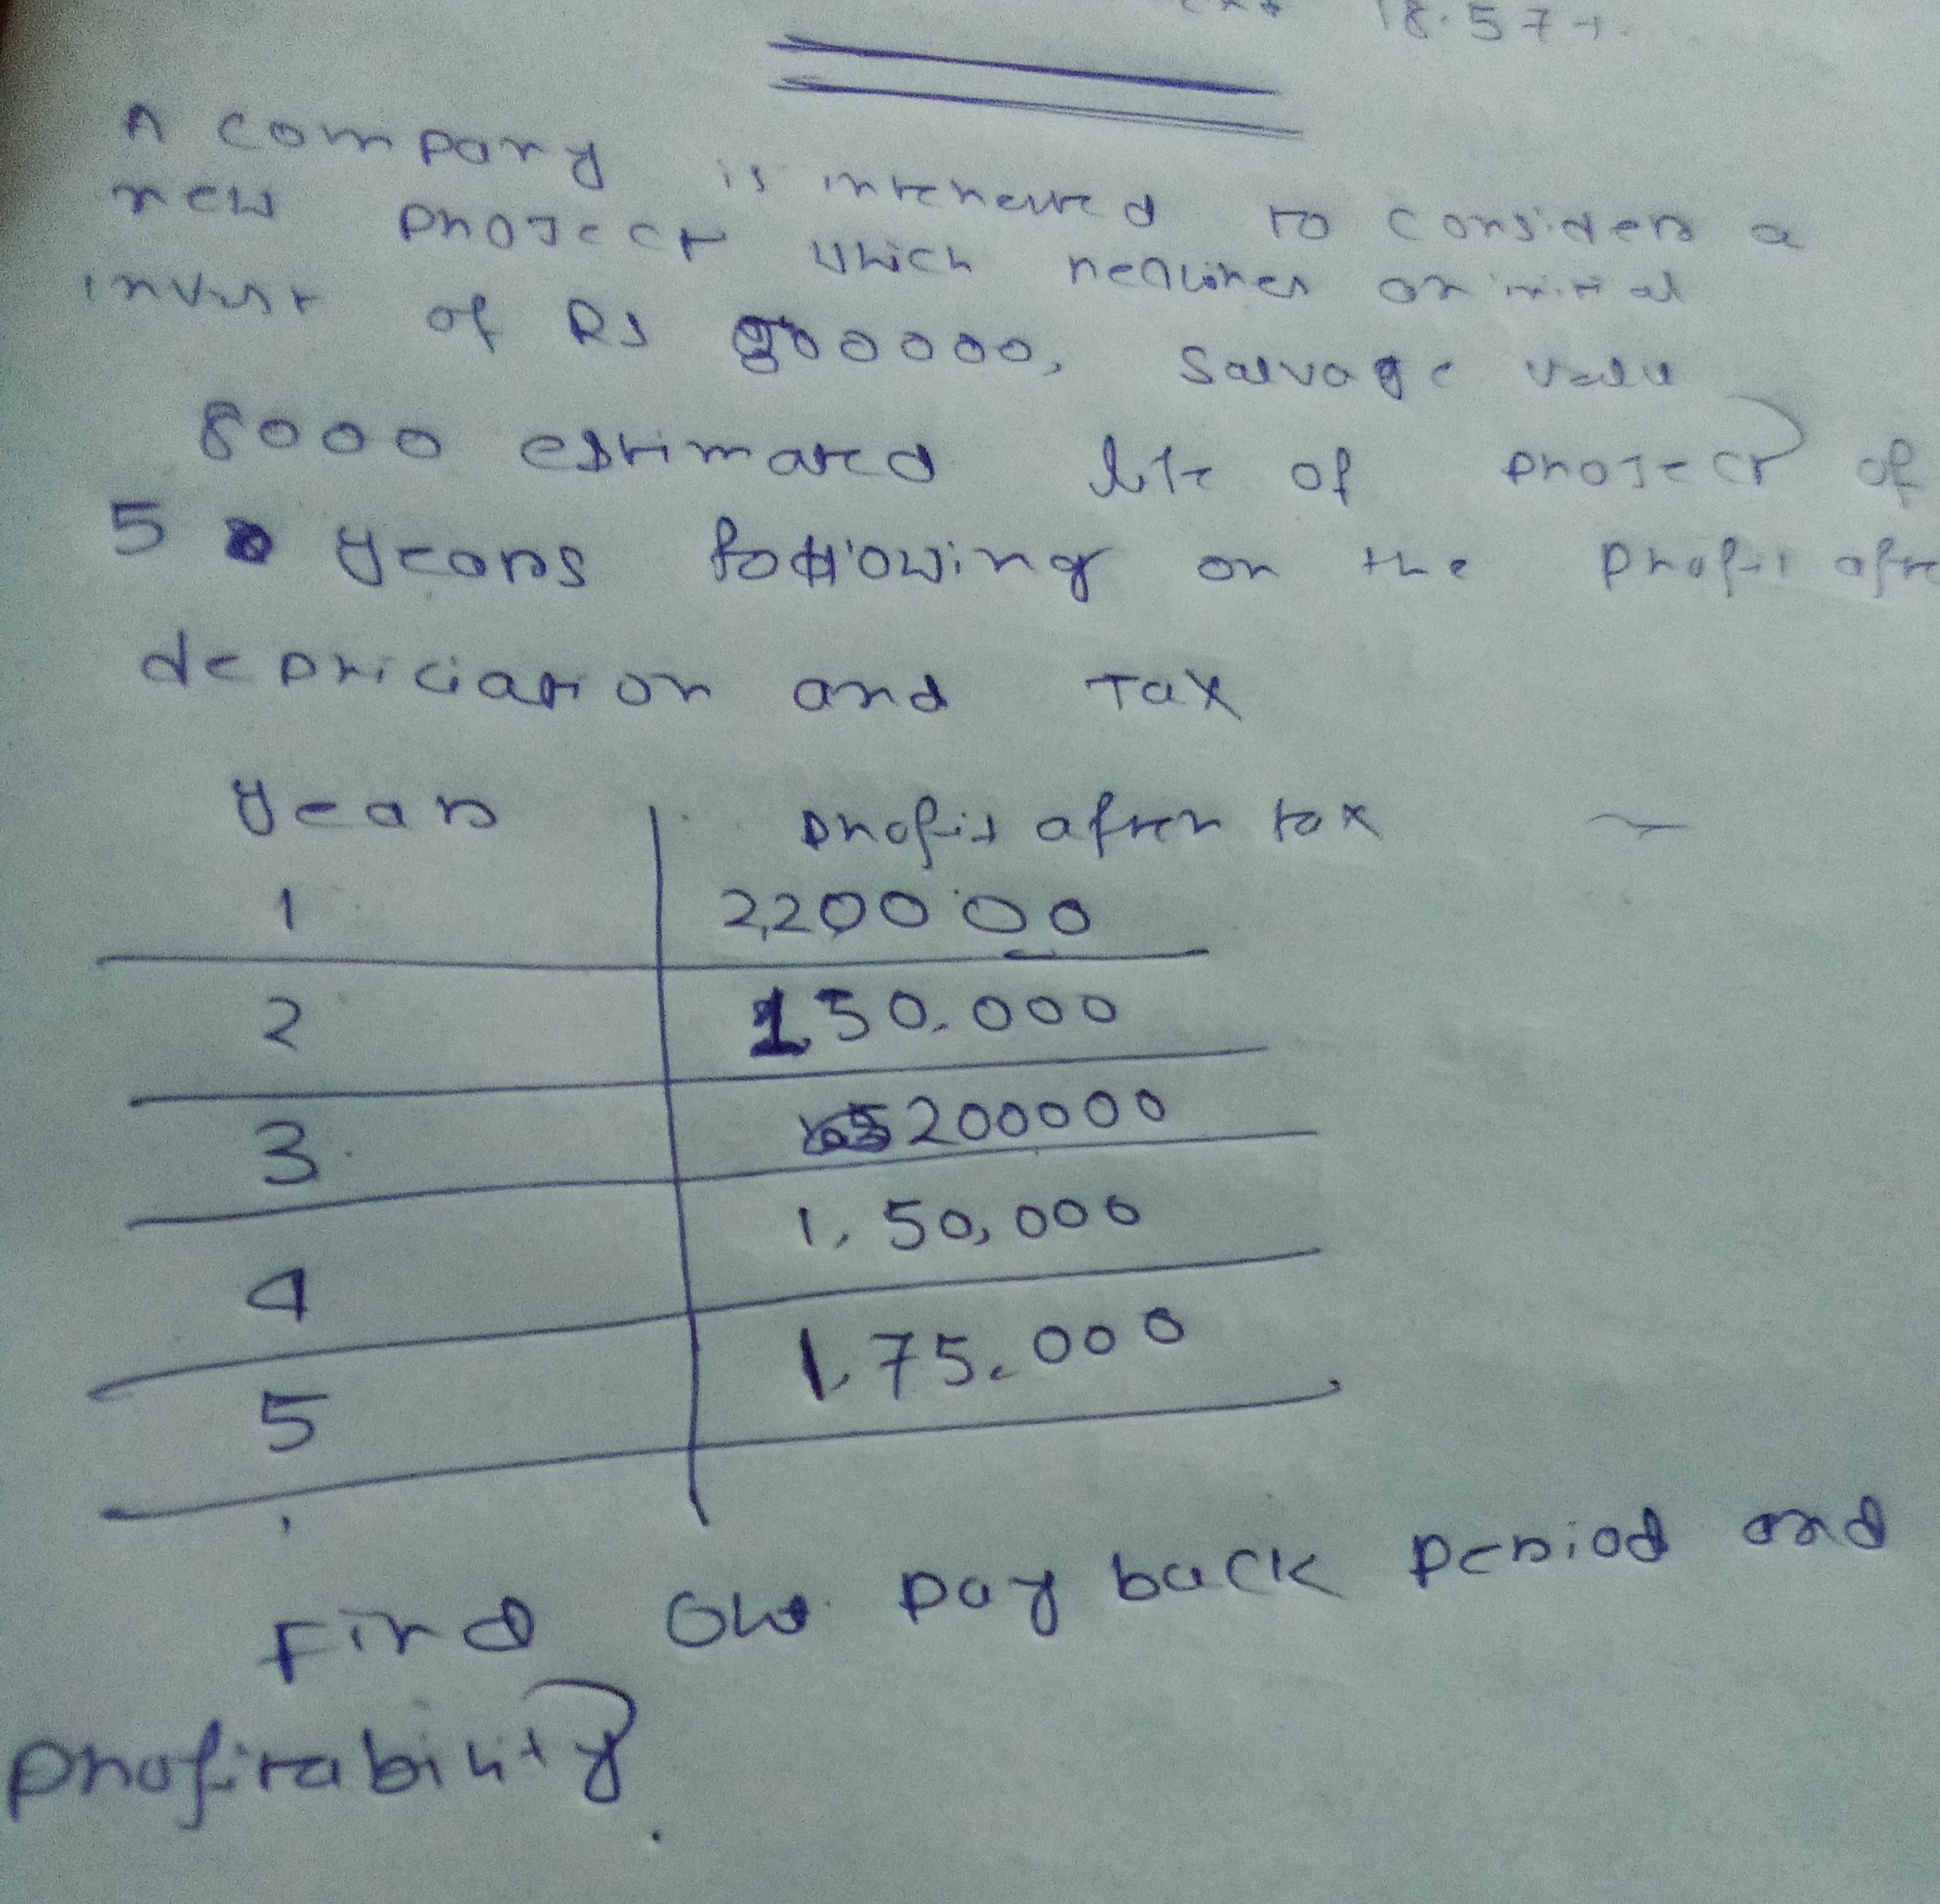 18.57
A company is interested to consider a
new project which requires an initial
invest of Rs 800000, Salvage value
8000 estimated life of project of
5 years following on the profit afte
depriciation and Tax
year profit after tax
1 2,20000
2 150.000
3 200000
4 1,50,000
5 1,75.000
Find out pay back period and
profitability.